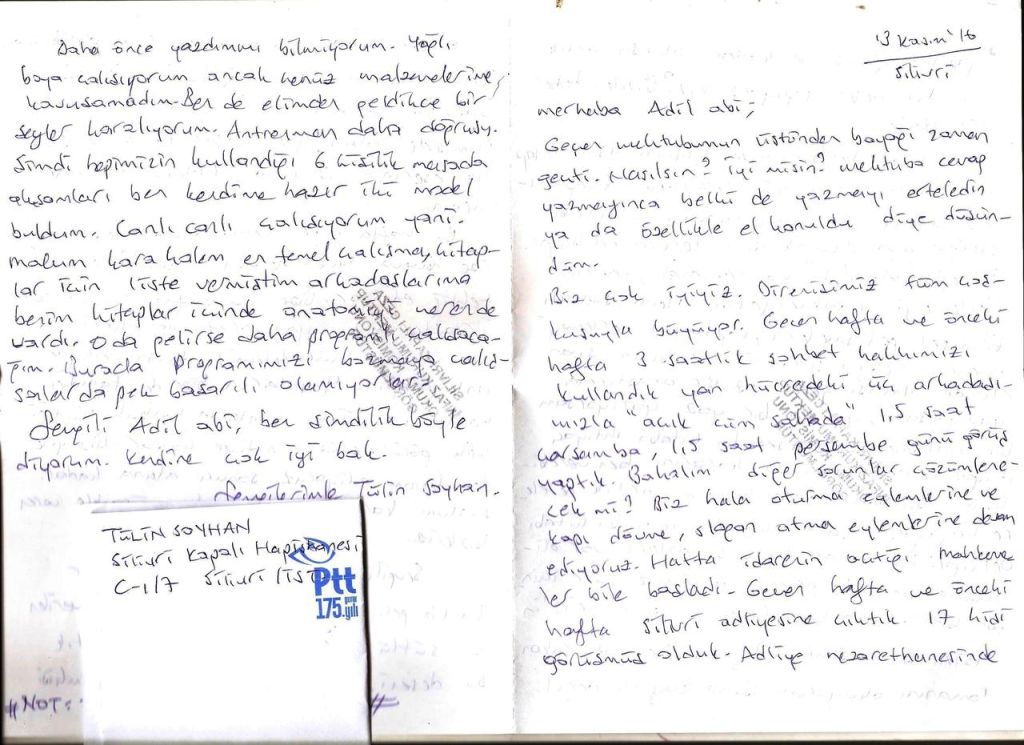 13 Kasım '16
Silivri
merhaba Adil abi;
Geçen mektubumun üstünden bayağı zaman
geçti. Nasılsın? İyi misin? mektuba cevap
yazmayınca belki de yazmayı erteledin
ya da özellikle el konuldu diye düşün-
düm.
Biz çok iyiyiz. Direnişimiz tüm coş-
kusuyla büyüyor. Geçen hafta ve önceki
hafta 3 saatlik sohbet hakkımızı
kullandık yan hücredeki üç arkadaşı-
mızla "açık cüm sahada" 1,5 saat
çarşamba, 1,5 saat perşembe günü görüş
yaptık. Bakalım diğer sorunlar çözümlene-
cek mi? Biz hala oturma eylemlerine ve
kapı dövme, slogan atma eylemlerine devam
ediyoruz. Hatta idarenin açtığı mahkeme
ler bile başladı. Geçen hafta ve önceki
hafta Silivri adliyesine çıktık. 17 kişi
görüşmüş olduk. Adliye nezarethanesinde
Daha önce yazdımmı bilmiyorum. Yağlı
boya çalışıyorum ancak henüz malzemelerime
kavuşamadım. Ben de elimden geldikçe bir
şeyler karalıyorum. Antrenman daha doğrusu.
Şimdi hepimizin kullandığı 6 kişilik masada
akşamları ben kendime hazır iki model
buldum. Canlı canlı çalışıyorum yani.
malum kara kalem en temel çalışma, kitap-
lar için liste vermiştim arkadaşlarıma
benim kitaplar içinde anatomik
vardı. O da gelirse daha programlı çalışaca-
ğım. Burada programımızı bozmaya çalış-
salarda pek başarılı olamıyorlar.
Sevgili Adil abi, ben şimdilik böyle
diyorum. Kendine çok iyi bak.
Sevgilerimle Tülin Soyhan.
TÜLİN SOYHAN
Silivri Kapalı Hapishanesi
C-1/7 Silivri / İST
Ptt
175. yılı
#NOT: #